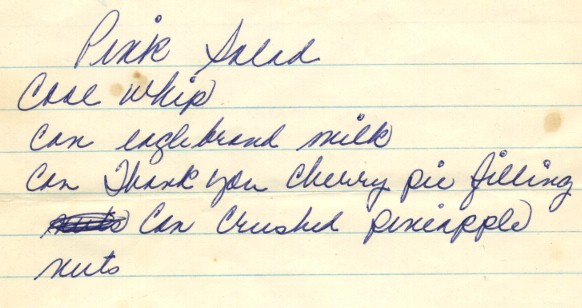 Pink Salad
Cool Whip
Can eaglebrand milk
Can Thank you Cherry pie filling
Can Crushed pineapple
nuts